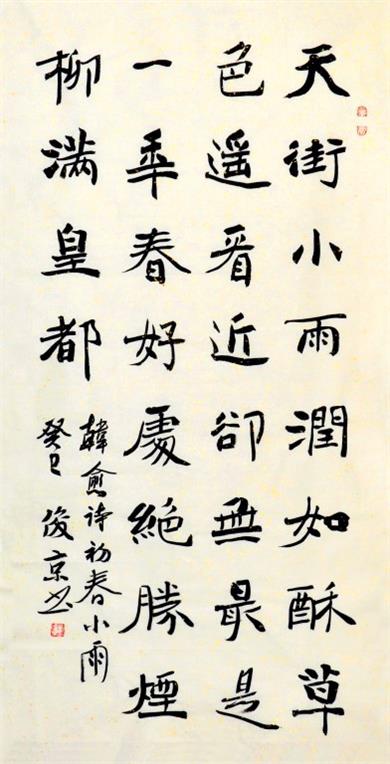 天街小雨潤如酥草
色遥看近卻無最是
一年春好處絶勝煙
柳满皇都
韓愈诗初春小雨
癸巳俊京书